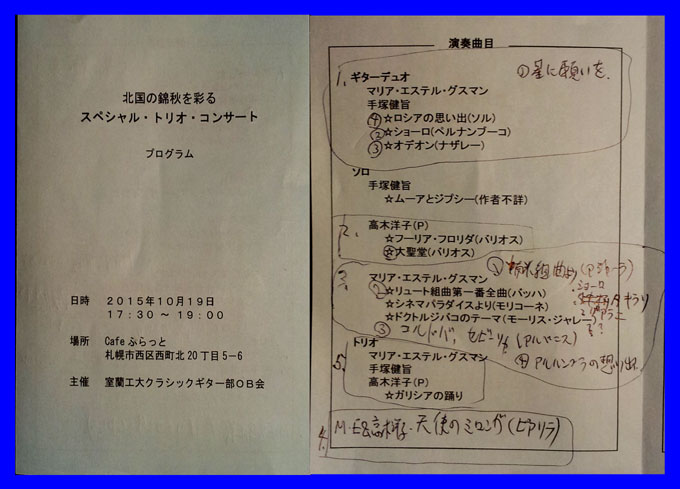 北国の錦秋を彩る
スペシャル・トリオ・コンサート
プログラム
日時 2015年10月19日
17:30～19:00
場所 Cafeふらっと
札幌市西区西町北20丁目5－6
主催 室蘭工大クラシックギター部OB会
演奏曲目
1. ギターデュオ
① 星に願いを.
マリア・エステル・グスマン
手塚健旨
④☆ロシアの思い出(ソル)
②☆ショーロ(ペルナンブーコ)
③☆オデオン(ナザレー)
ソロ
手塚健旨
☆ムーアとジプシー(作者不詳)
2. 高木洋子(P)
☆フーリア・フロリダ(バリオス)
☆大聖堂(バリオス)
3. マリア・エステル・グスマン
②☆リュート組曲第一番全曲(バッハ)
☆シネマパラダイスより(モリコーネ)
☆ドクトルジバコのテーマ(モーリス・ジャレー)
③ コルドバ, セビリア (アルベニス)
④ アルハンブラの想い出.
5. トリオ
マリア・エステル・グスマン
手塚健旨
高木洋子(P)
☆ガリシアの踊り
4. 天使のミロンガ(ピアソラ)